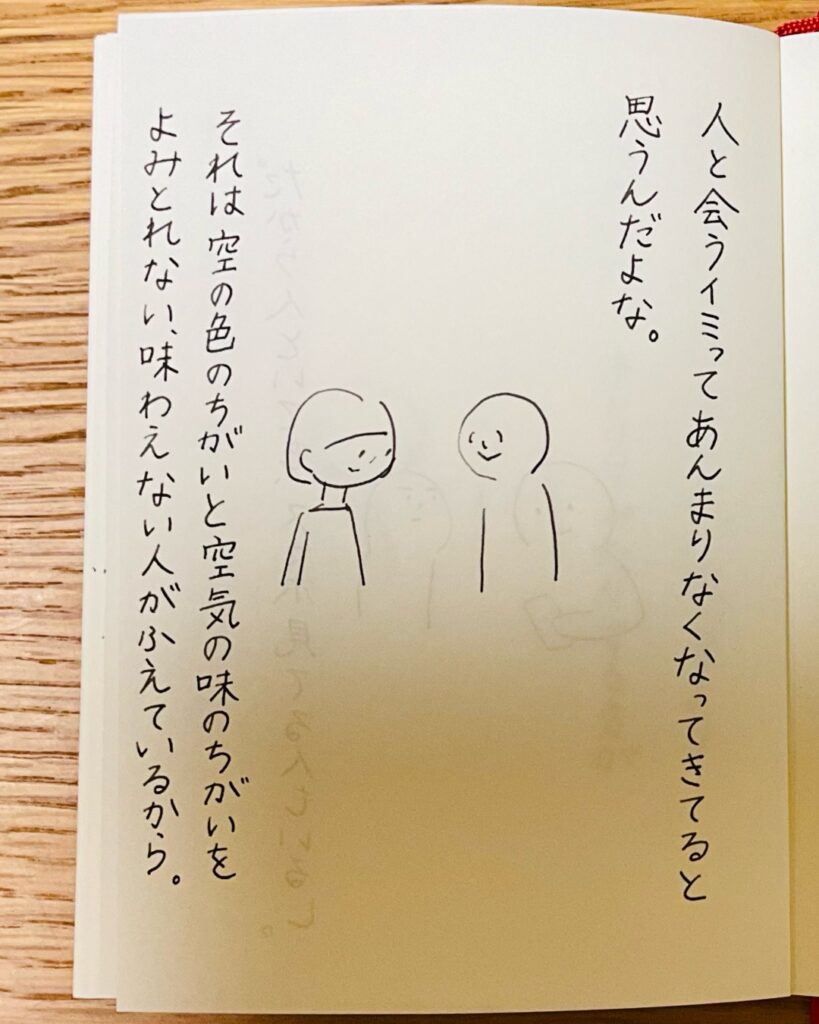 人と会うイミってあんまりなくなってきてると
思うんだよな。
それは空の色のちがいと空気の味のちがいを
よみとれない、味わえない人がふえているから。